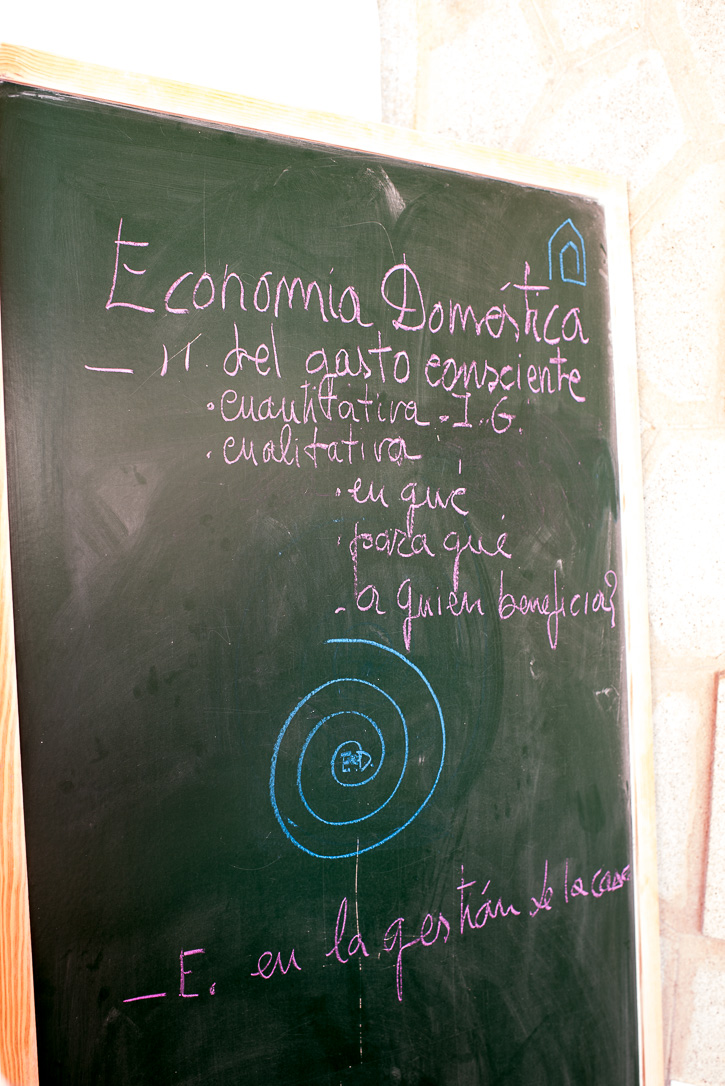 Economía Doméstica
— 11 del gasto consciente
· cuantitativa - I. G.
· cualitativa
· en qué
· para qué
- a quién beneficia?
E.D.
— E. en la gestión de la casa